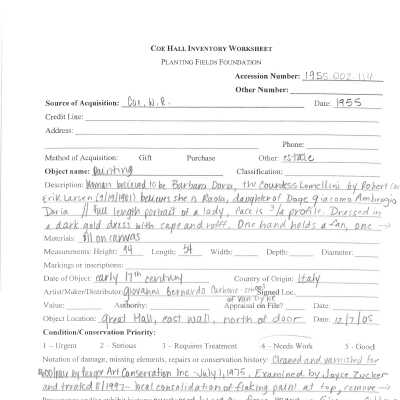 COE HALL INVENTORY WORKSHEET
PLANTING FIELDS FOUNDATION
Accession Number: 1955.002.114
Other Number:
Source of Acquisition: Coe, W.R. Date: 1955
Credit Line:
Address:
Phone:
Method of Acquisition: Gift Purchase Other: estate
Object name: painting Classification:
Description: Woman believed to be Barbara Doria, the Countess Lomellini by Robert
Erik Larsen (9/19/1981) believes she is Paola, daughter of Doge Giacomo Ambrogio
Doria // Full length portrait of a lady, face is 3/4 profile. Dressed in
a dark gold dress with cape and ruff. One hand holds a fan, one →
Materials: oil on canvas
Measurements: Height: 94 Length: 54 Width: Depth: Diameter:
Markings or inscriptions:
Date of Object: early 17th century Country of Origin: Italy
Artist/Maker/Distributor: Giovanni Bernardo Carbone Signed Loc.
of Van Dyke
Value: Authority: Appraisal on File? Date:
Object Location: Great Hall, east wall, north of door Date: 12/7/05
Condition/Conservation Priority:
1 - Urgent 2 - Serious 3 - Requires Treatment 4 - Needs Work 5 - Good
Notation of damage, missing elements, repairs or conservation history: Cleaned and varnished for
by Art Conservation Inc July 1, 1975. Examined by Joyce Zucker
and treated 8/1997 - local consolidation of flaking paint at top, remove →